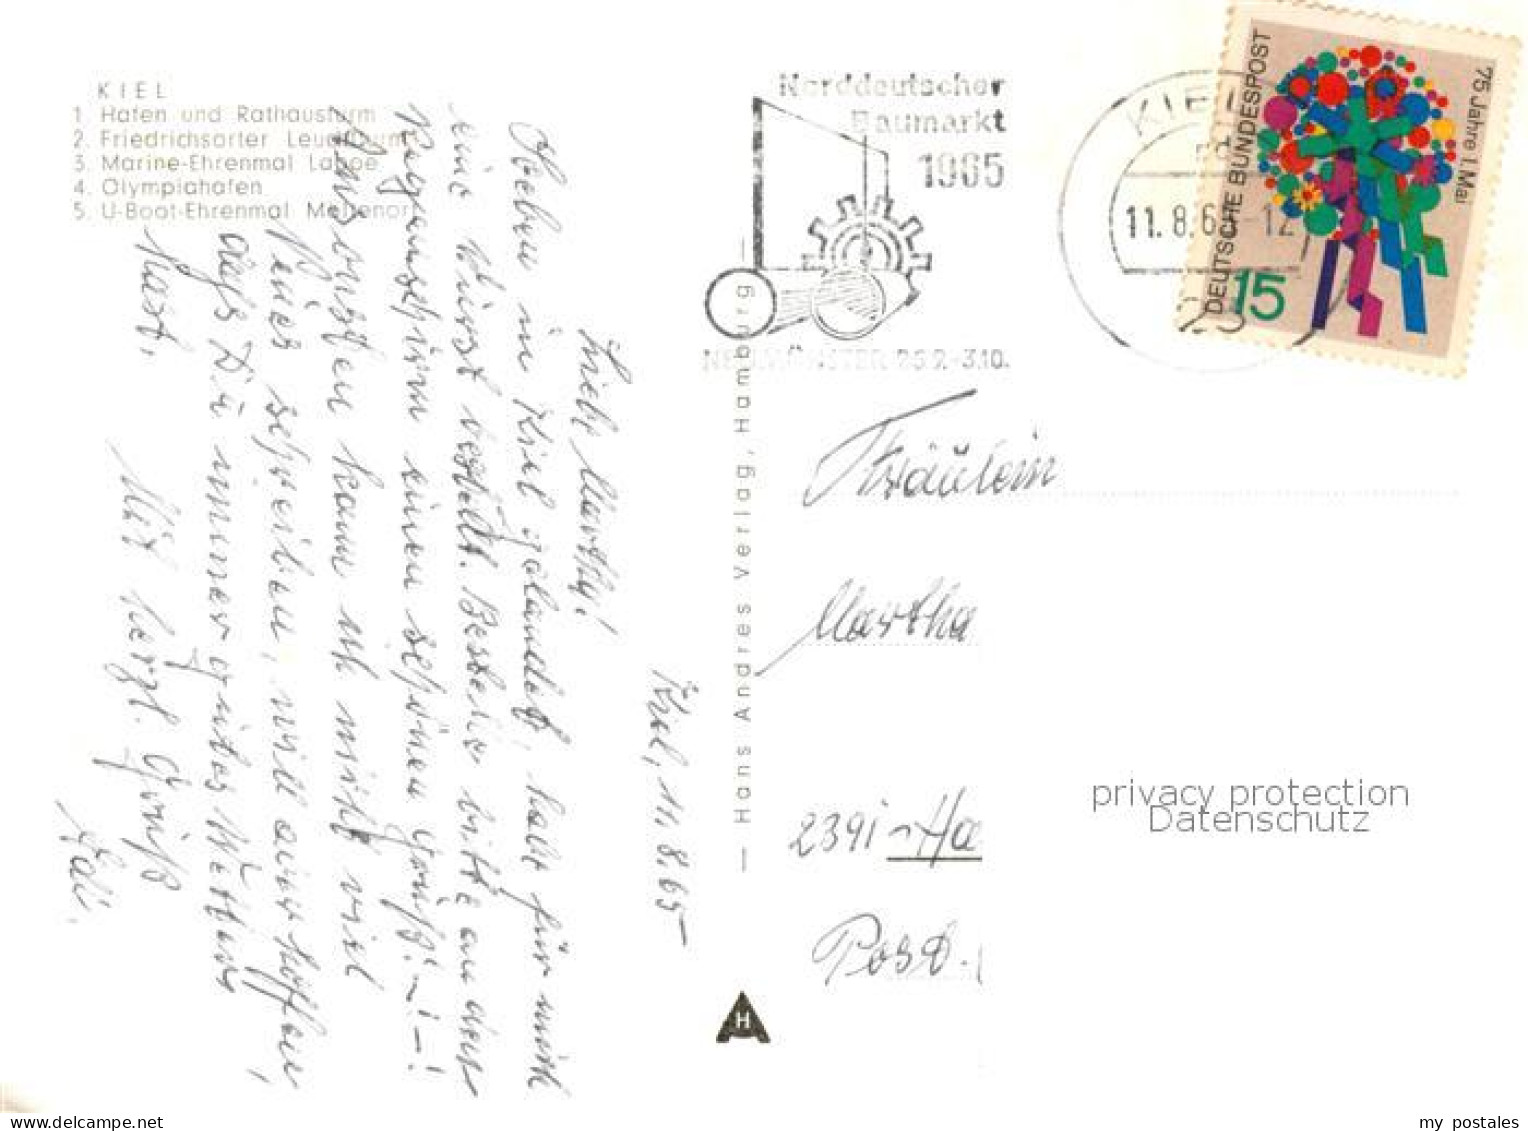 KIEL
1. Hafen und Rathausturm
2. Friedrichsorter Leuchtturm
3. Marine-Ehrenmal Laboe
4. Olympiahafen
5. U-Boot-Ehrenmal Möltenort
Norddeutscher
Baumarkt
1965
NEUMÜNSTER 25.9.-3.10.
KIEL
11.8.65-12
DEUTSCHE BUNDESPOST
75 Jahre 1. Mai
15
Kiel, 11.8.65
Liebe Marthy!
Soeben in Kiel gelandet, habe für mich
eine Würst bestellt. Bestelle bitte an den
Regenschirm einen schönen Gruß!-!-!
Ansonsten kann ich nicht viel
Neues schreiben, will aus hoffen,
daß Du immer gutes Wetter
hast.
Mit herzl. Gruß
— Hans Andres Verlag, Hamburg —
AH
Fräulein
Martha
2391 - Ha
Post.
privacy protection
Datenschutz
www.delcampe.net
my_postales